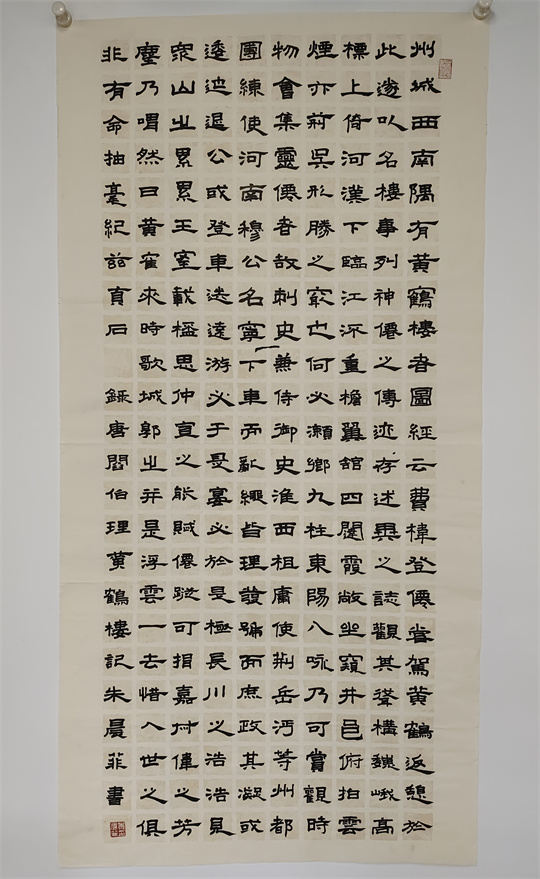 州城西南隅有黃鶴樓者圖經云費禕登僊嘗駕黃鶴返憩於
此遂以名樓事列神僊之傳迹存述異之誌觀其聳構巍峨高
標上倚河漢下臨江流重檐翼舘四闥霞敞坐窺井邑俯拍雲
煙亦荊吳形勝之冣也何必瀨鄉九柱東陽八咏乃可賞觀時
物會集靈僊者哉刺史兼侍御史淮西租庸使荊岳沔等州都
團練使河南穆公名寧下車而亂繩皆理發號而庶政其凝或
逶迤退公或登車送遠游必于是宴必於是極長川之浩浩見
衆山之累累王室載懷思仲宣之能賦僊蹤可揖嘉叔偉之芳
塵乃喟然曰黃雀來時歌城郭之并是浮雲一去惜人世之俱
非有命抽毫紀兹貞石 錄唐閻伯理黃鶴樓記朱晨菲書